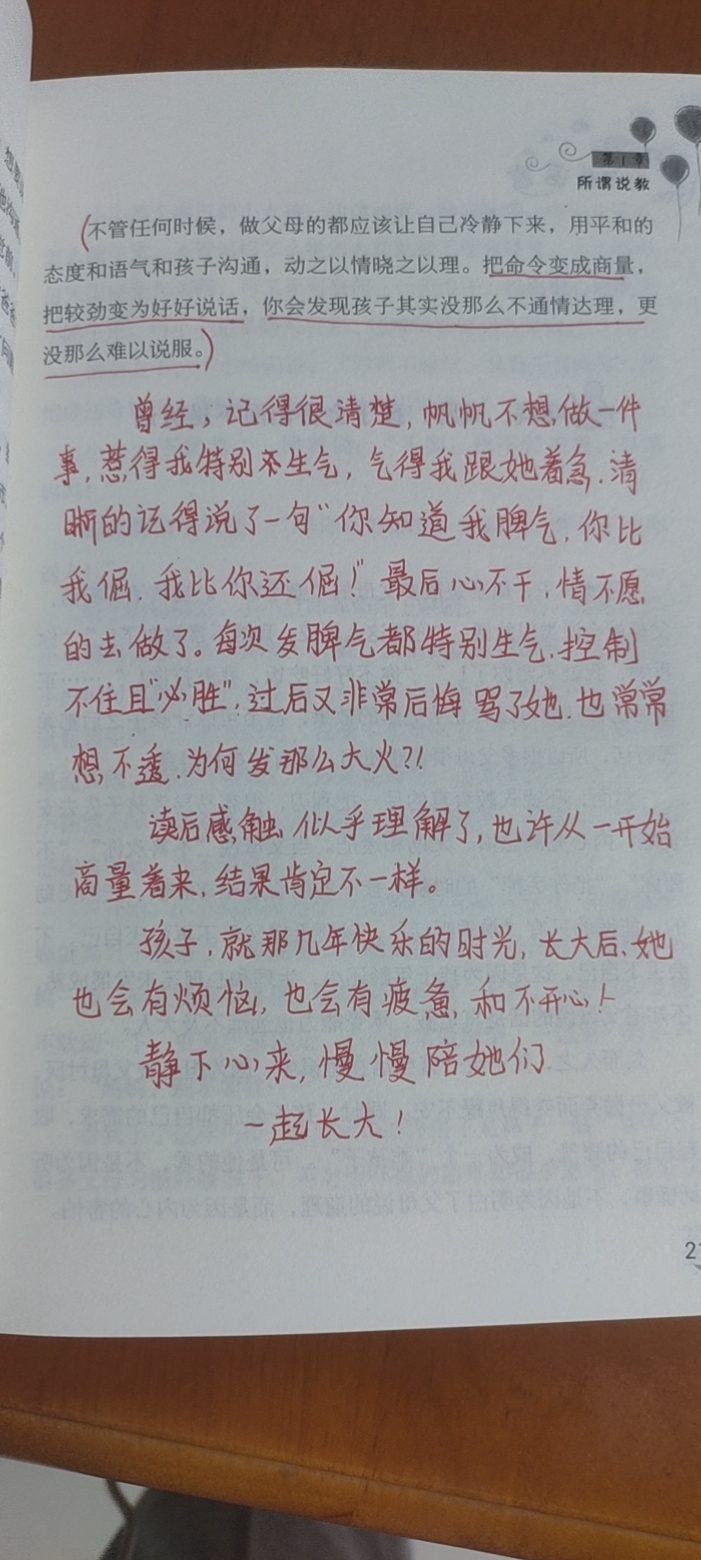 第1章
所谓说教
(不管任何时候，做父母的都应该让自己冷静下来，用平和的
态度和语气和孩子沟通，动之以情晓之以理。把命令变成商量，
把较劲变为好好说话，你会发现孩子其实没那么不通情达理，更
没那么难以说服。)
曾经，记得很清楚，帆帆不想做一件
事，惹得我特别生气，气得我跟她着急.清
晰的记得说了一句“你知道我脾气，你比
我倔.我比你还倔！”最后心不干，情不愿
的去做了。每次发脾气都特别生气.控制
不住且“必胜”.过后又非常后悔骂了她.也常常
想不透.为何发那么大火？！
读后感触似乎理解了，也许从一开始
商量着来，结果肯定不一样。
孩子，就那几年快乐的时光，长大后、她
也会有烦恼，也会有疲惫，和不开心！
静下心来，慢慢陪她们
一起长大！